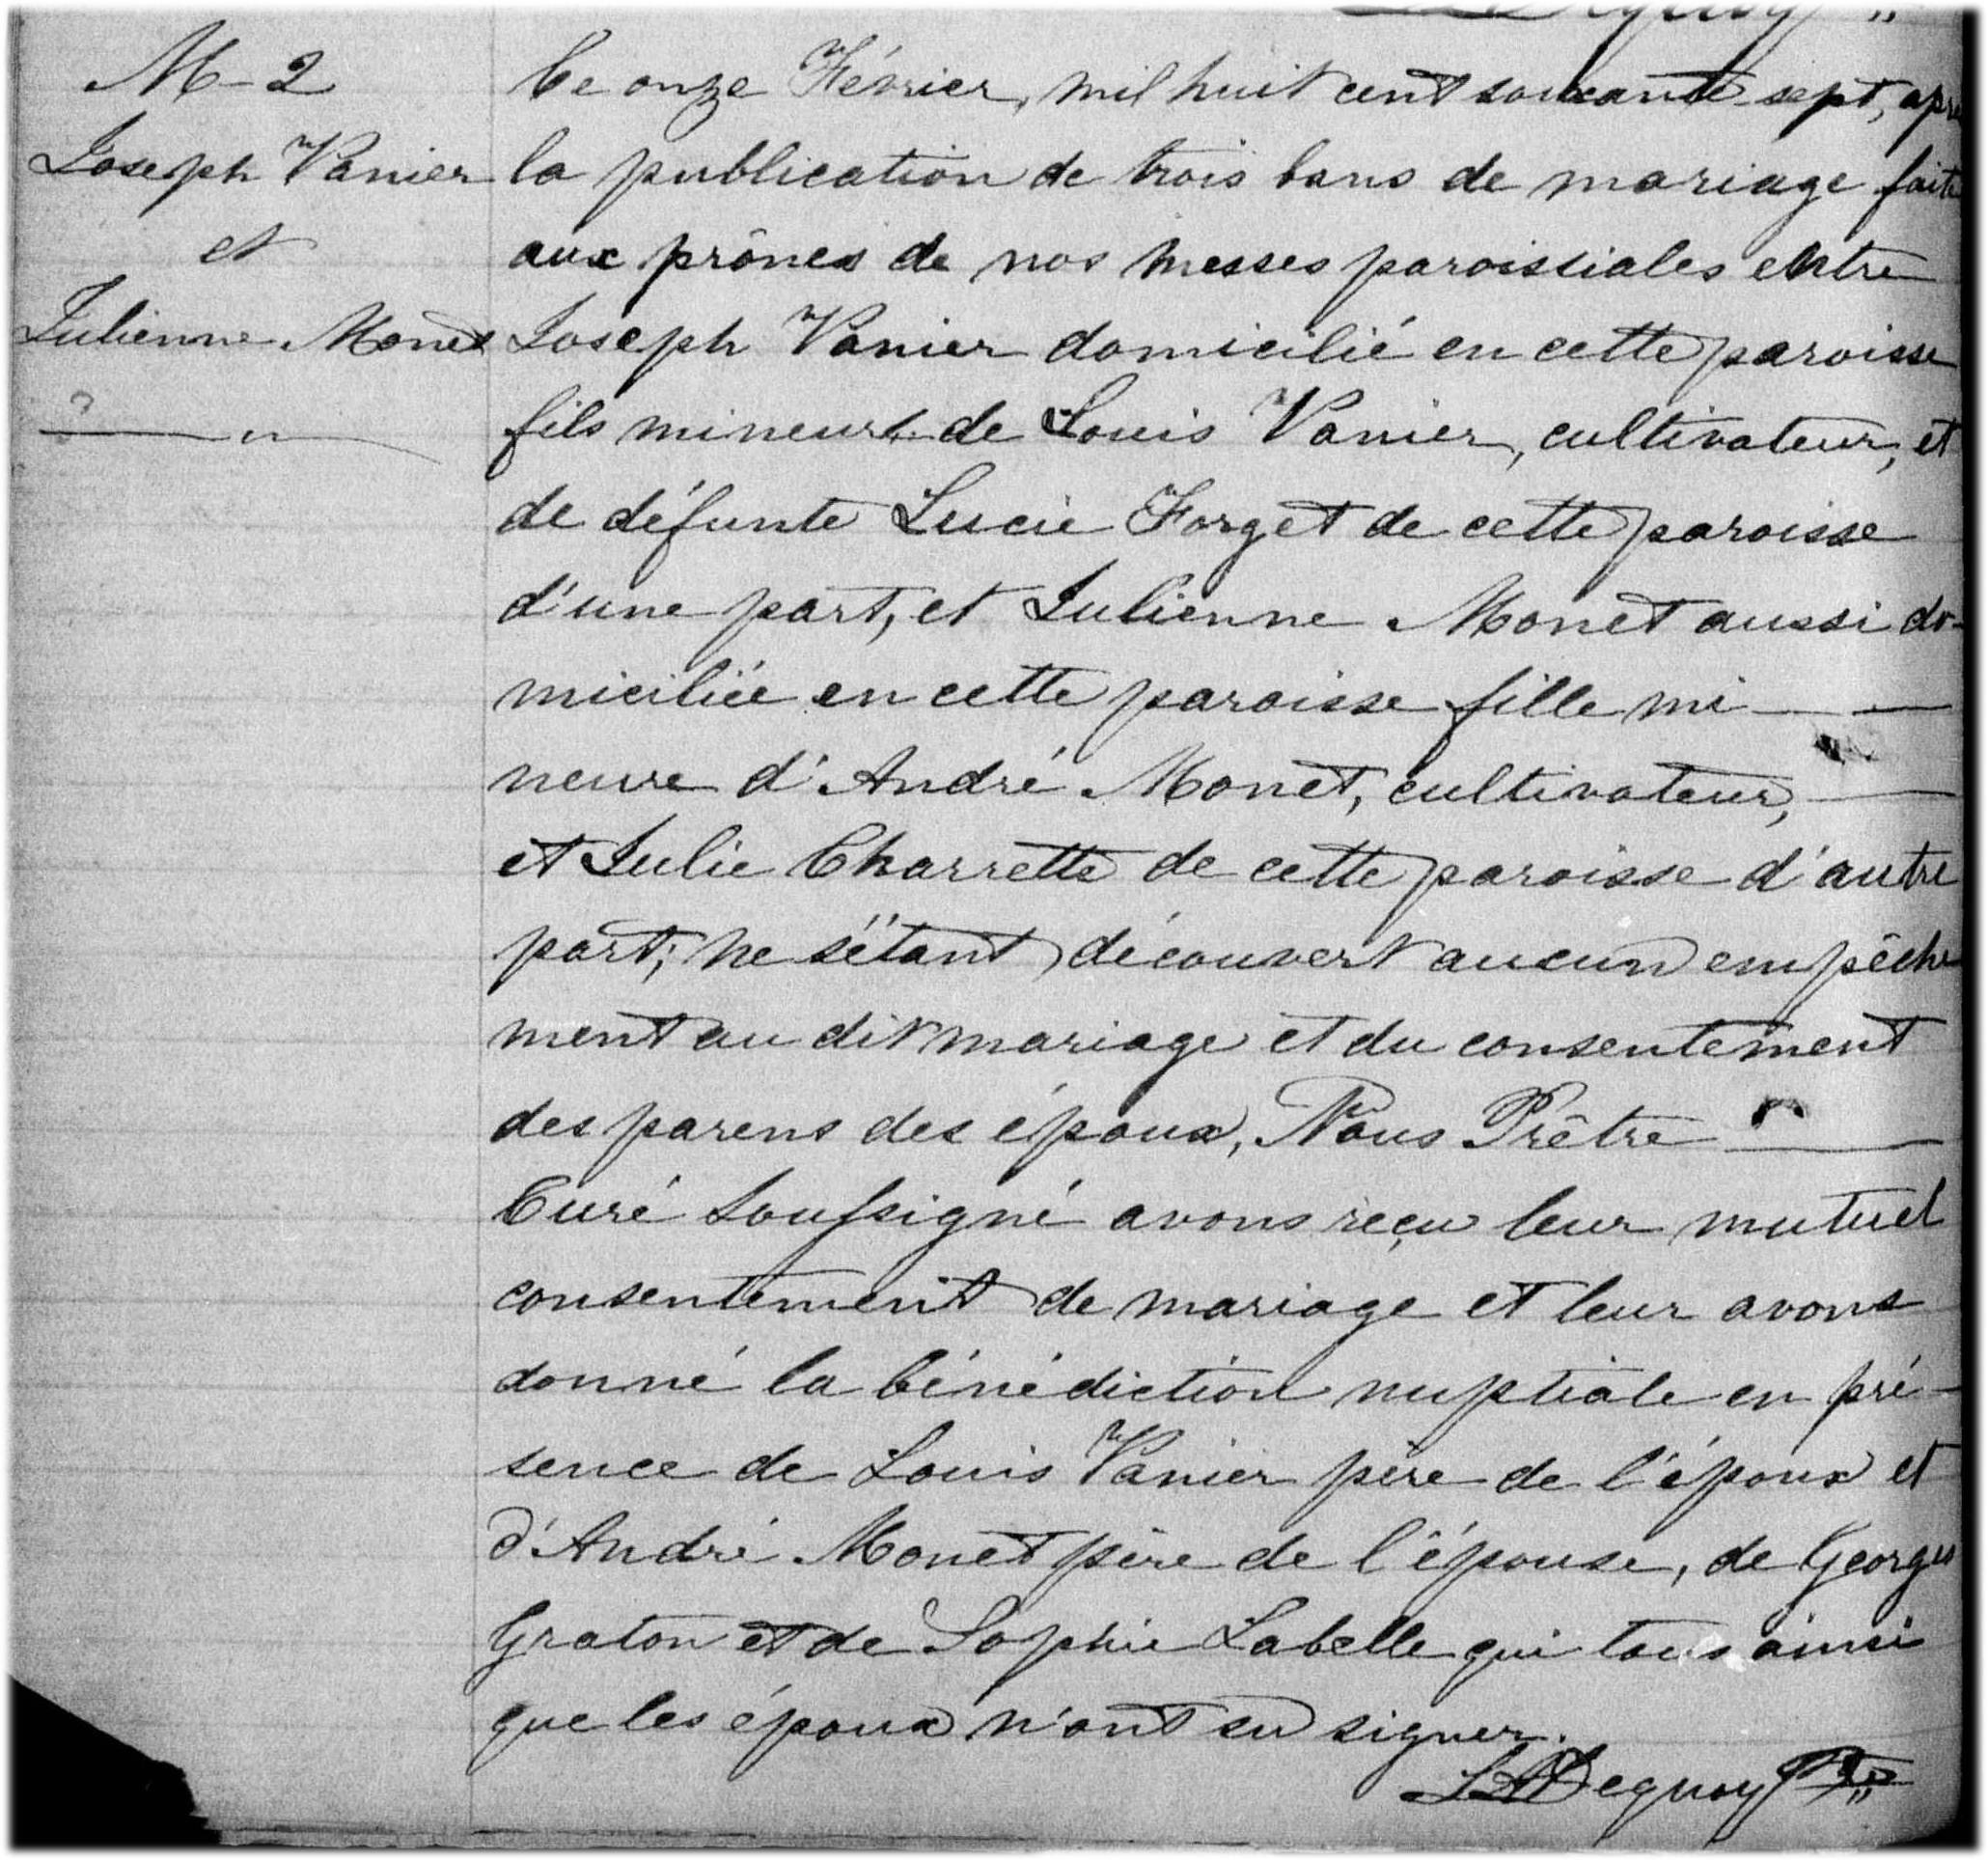 M-2
Joseph Vanier
et
Julienne Monet
Ce onze Février, mil huit cent soixante-sept, après
la publication de trois bans de mariage faite
aux prônes de nos messes paroissiales entre
Joseph Vanier domicilié en cette paroisse
fils mineur de Louis Vanier, cultivateur, et
de défunte Lucie Forget de cette paroisse
d'une part, et Julienne Monet aussi do-
miciliée en cette paroisse fille mi
neure d'André Monet, cultivateur,
et Julie Charrette de cette paroisse d'autre
part; ne s'étant découvert aucun empêche
ment au dit mariage et du consentement
des parens des époux, Nous Prêtre
Curé Soussigné avons reçu leur mutuel
consentement de mariage et leur avons
donné la bénédiction nuptiale en pré-
sence de Louis Vanier père de l'époux et
d'André Monet père de l'épouse, de Georges
Graton et de Sophie Labelle qui tous ainsi
que les époux n'ont su signer.
LADequoy Ptre